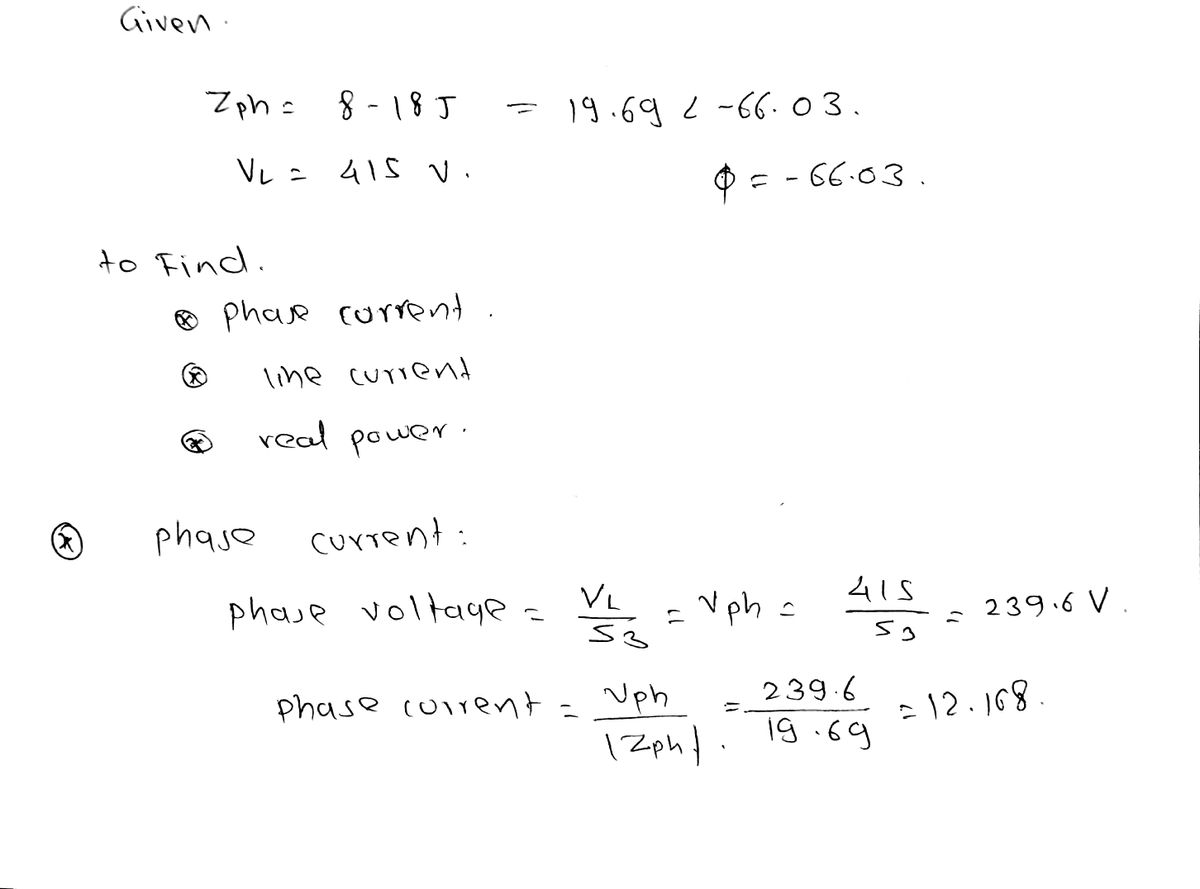 Given.
Zph = 8 - 18J = 19.69 ∠ -66.03.
VL = 415 V. ϕ = -66.03.
to Find.
⊛ phase current.
⊛ line current
⊛ real power.
⊛ phase current:
phase voltage = VL/√3 = Vph = 415/√3 = 239.6 V.
phase current = Vph/|Zph|. = 239.6/19.69 = 12.168.